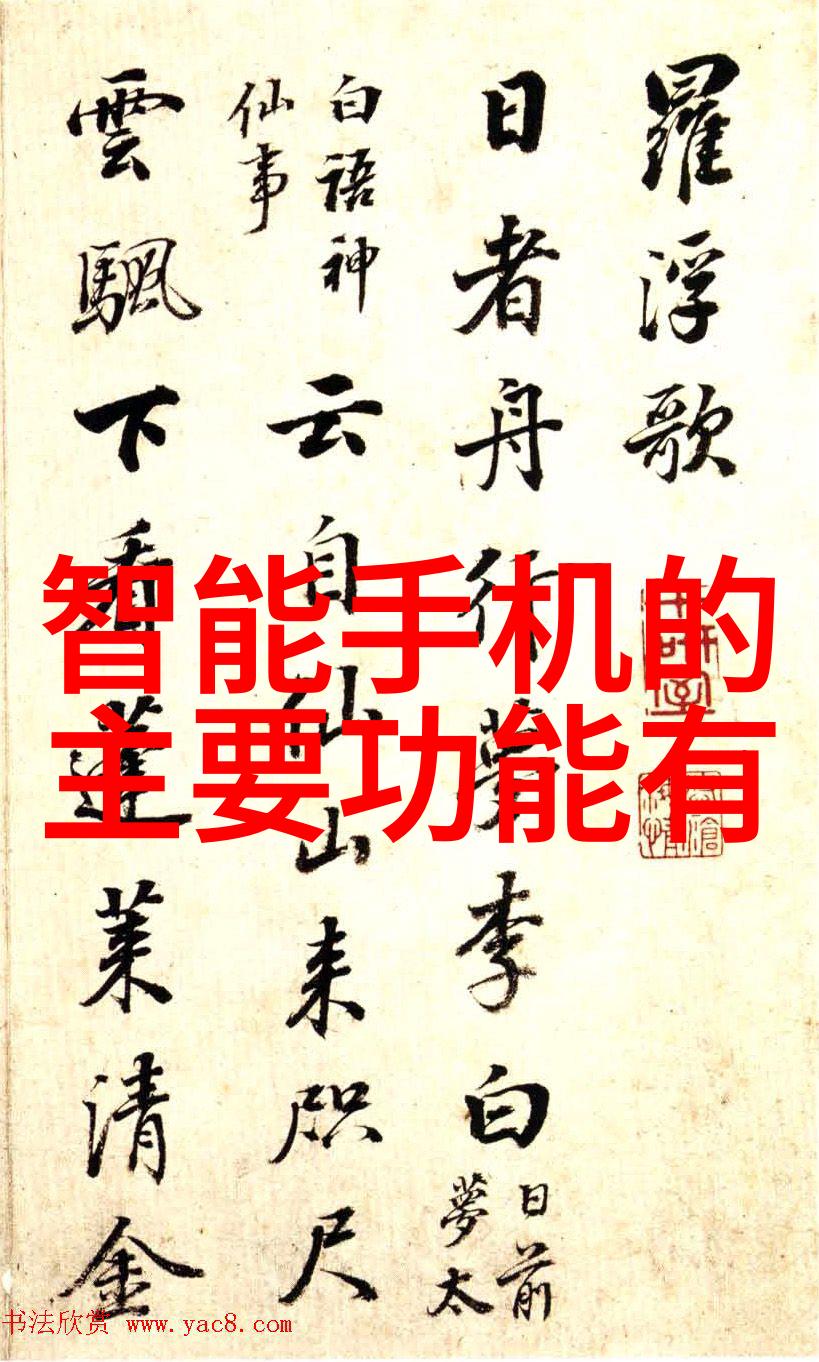 智能手机的
主要功能有
羅浮歌
日者舟行夢李白
日前
夢太
白語神
仙事
云自仙山来咫尺
雲颿下看蓬萊清金
书法欣赏 www.yac8.com